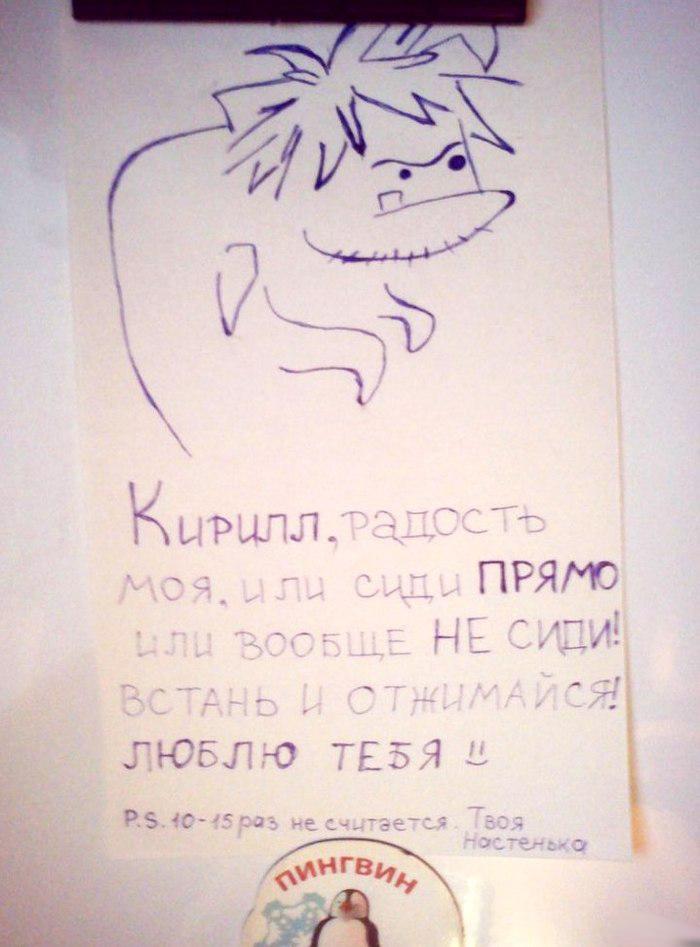 Кирилл, радость
моя, или сиди ПРЯМО
или вообще НЕ СИДИ!
ВСТАНЬ И ОТЖИМАЙСЯ!
ЛЮБЛЮ ТЕБЯ !!
P.S. 10-15 раз не считается. Твоя
Настенька
ПИНГВИН